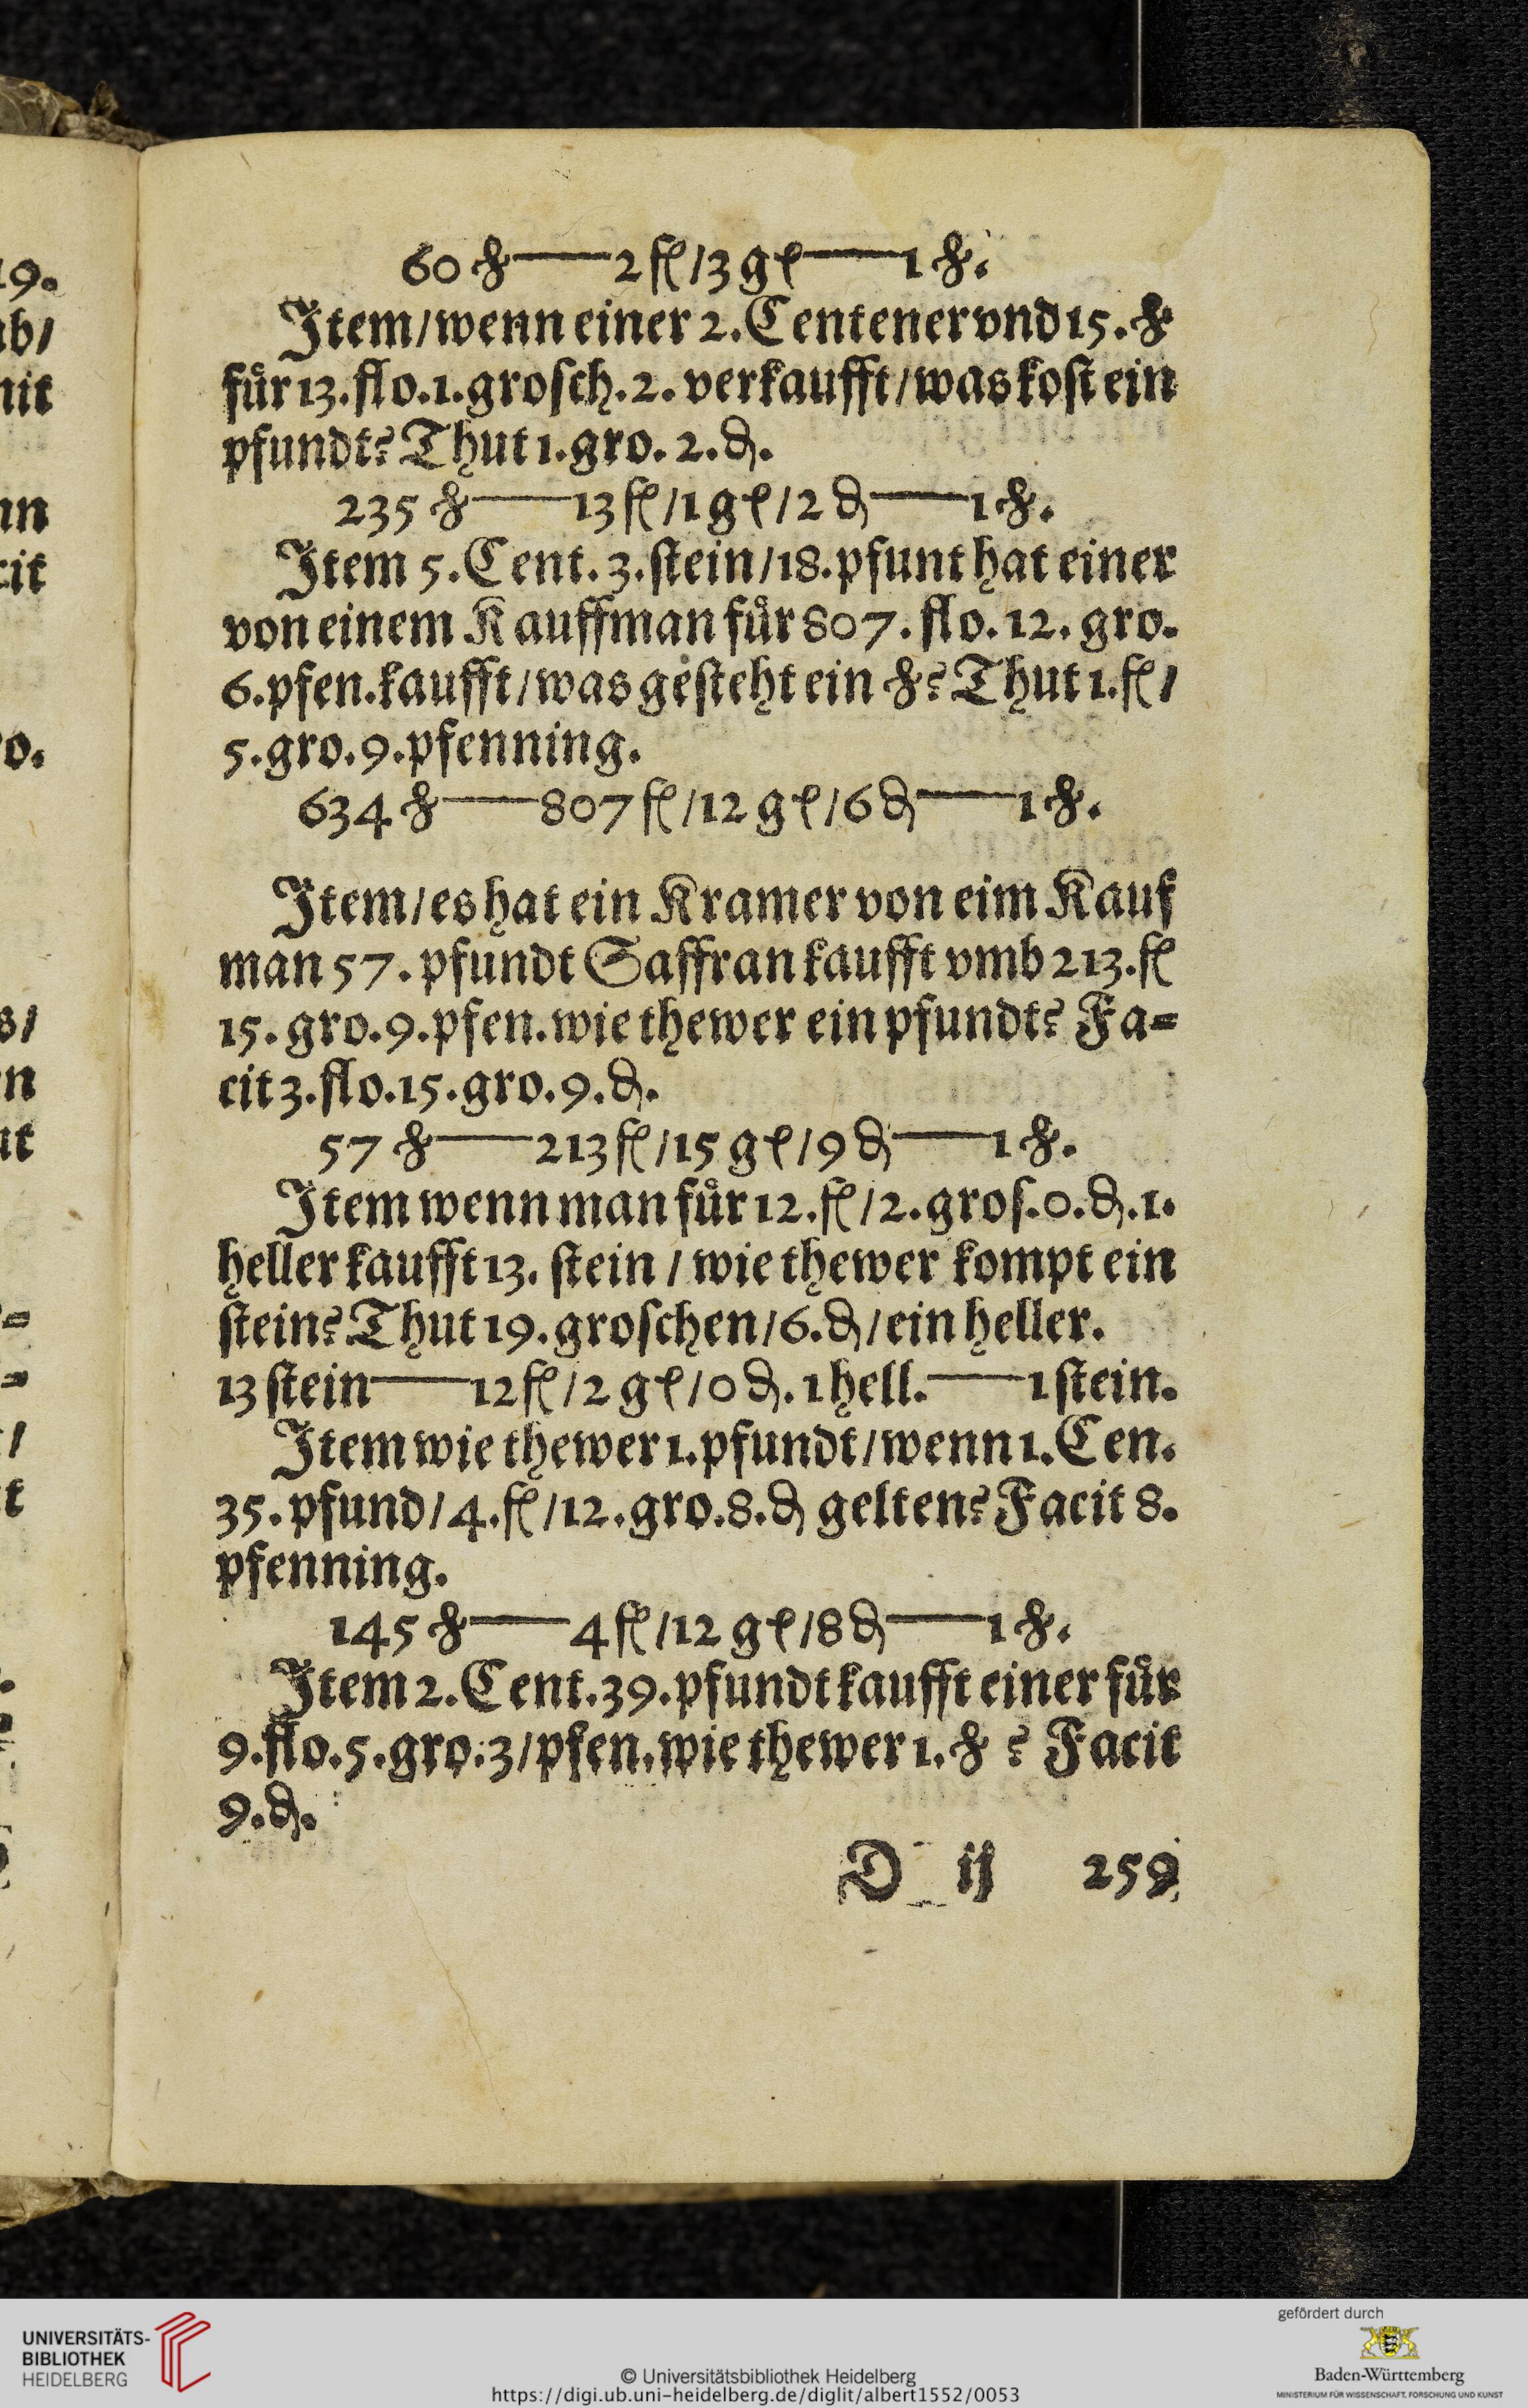 60 ℔——2 fl/3 gl——1 ℔.
Item/wenn einer 2. Centener vnd 15. ℔
fuͤr 13. flo. 1. grosch. 2. verkaufft/was kost ein
pfundt? Thut 1. gro. 2. ₰.
235 ℔——13 fl/1 gl/2 ₰——1 ℔.
Item 5. Cent. 3. stein/18. pfunt hat einer
von einem Kauffman fuͤr 807. flo. 12. gro.
6. pfen. kaufft/was gesteht ein ℔? Thut 1. fl/
5. gro. 9. pfenning.
634 ℔——807 fl/12 gl/6 ₰——1 ℔.
Item/es hat ein Kramer von eim Kauf
man 57. pfundt Saffran kaufft vmb 213. fl
15. gro. 9. pfen. wie thewer ein pfundt? Fa-
cit 3. flo. 15. gro. 9. ₰.
57 ℔——213 fl/15 gl/9 ₰——1 ℔.
Item wenn man fuͤr 12. fl/2. gros. 0. ₰. 1.
heller kaufft 13. stein/wie thewer kompt ein
stein? Thut 19. groschen/6. ₰/ein heller.
13 stein——12 fl/2 gl/0 ₰. 1 hell.——1 stein.
Item wie thewer 1. pfundt/wenn 1. Cen.
35. pfund/4. fl/12. gro. 8. ₰ gelten? Facit 8.
pfenning.
145 ℔——4 fl/12 gl/8 ₰——1 ℔.
Item 2. Cent. 39. pfundt kaufft einer fuͤr
9. flo. 5. gro. 3/pfen. wie thewer 1. ℔? Facit
9. ₰.
D ij 259
UNIVERSITÄTS-
BIBLIOTHEK
HEIDELBERG
© Universitätsbibliothek Heidelberg
https://digi.ub.uni-heidelberg.de/diglit/albert1552/0053
gefördert durch
Baden-Württemberg
MINISTERIUM FÜR WISSENSCHAFT, FORSCHUNG UND KUNST